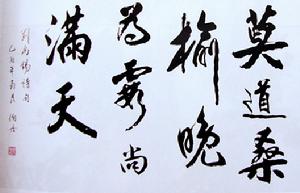 莫道桑
榆晚
為霞尚
滿天
劉禹錫詩句